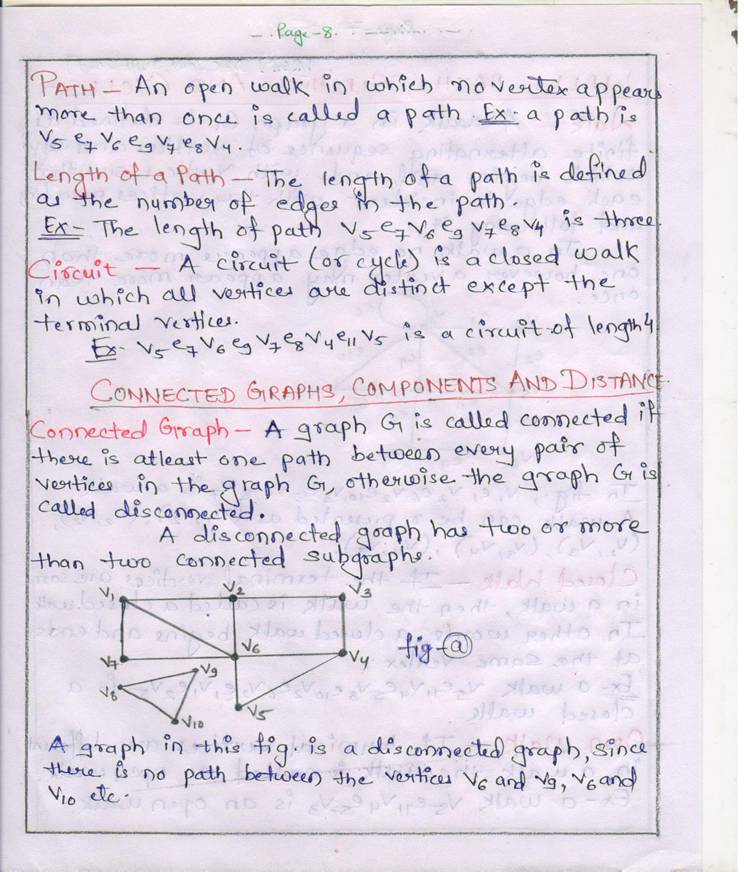 Page-8.
PATH - An open walk in which no vertex appears
more than once is called a path Ex: a path is
V5 e7 V6 e9 V7 e8 V4.
Length of a Path - The length of a path is defined
as the number of edges in the path.
Ex- The length of path V5 e7 V6 e9 V7 e8 V4 is three.
Circuit - A circuit (or cycle) is a closed walk
in which all vertices are distinct except the
terminal vertices.
Ex- V5 e7 V6 e9 V7 e8 V4 e11 V5 is a circuit of length 4.
CONNECTED GRAPHS, COMPONENTS AND DISTANCE
Connected Graph - A graph G is called connected if
there is atleast one path between every pair of
vertices in the graph G, otherwise the graph G is
called disconnected.
A disconnected graph has two or more
than two connected subgraphs.
V1 V2 V3
V7 V6 V4 fig-(a)
V8 V9
V10 V5
A graph in this fig. is a disconnected graph, since
there is no path between the vertices V6 and V9, V6 and
V10 etc.